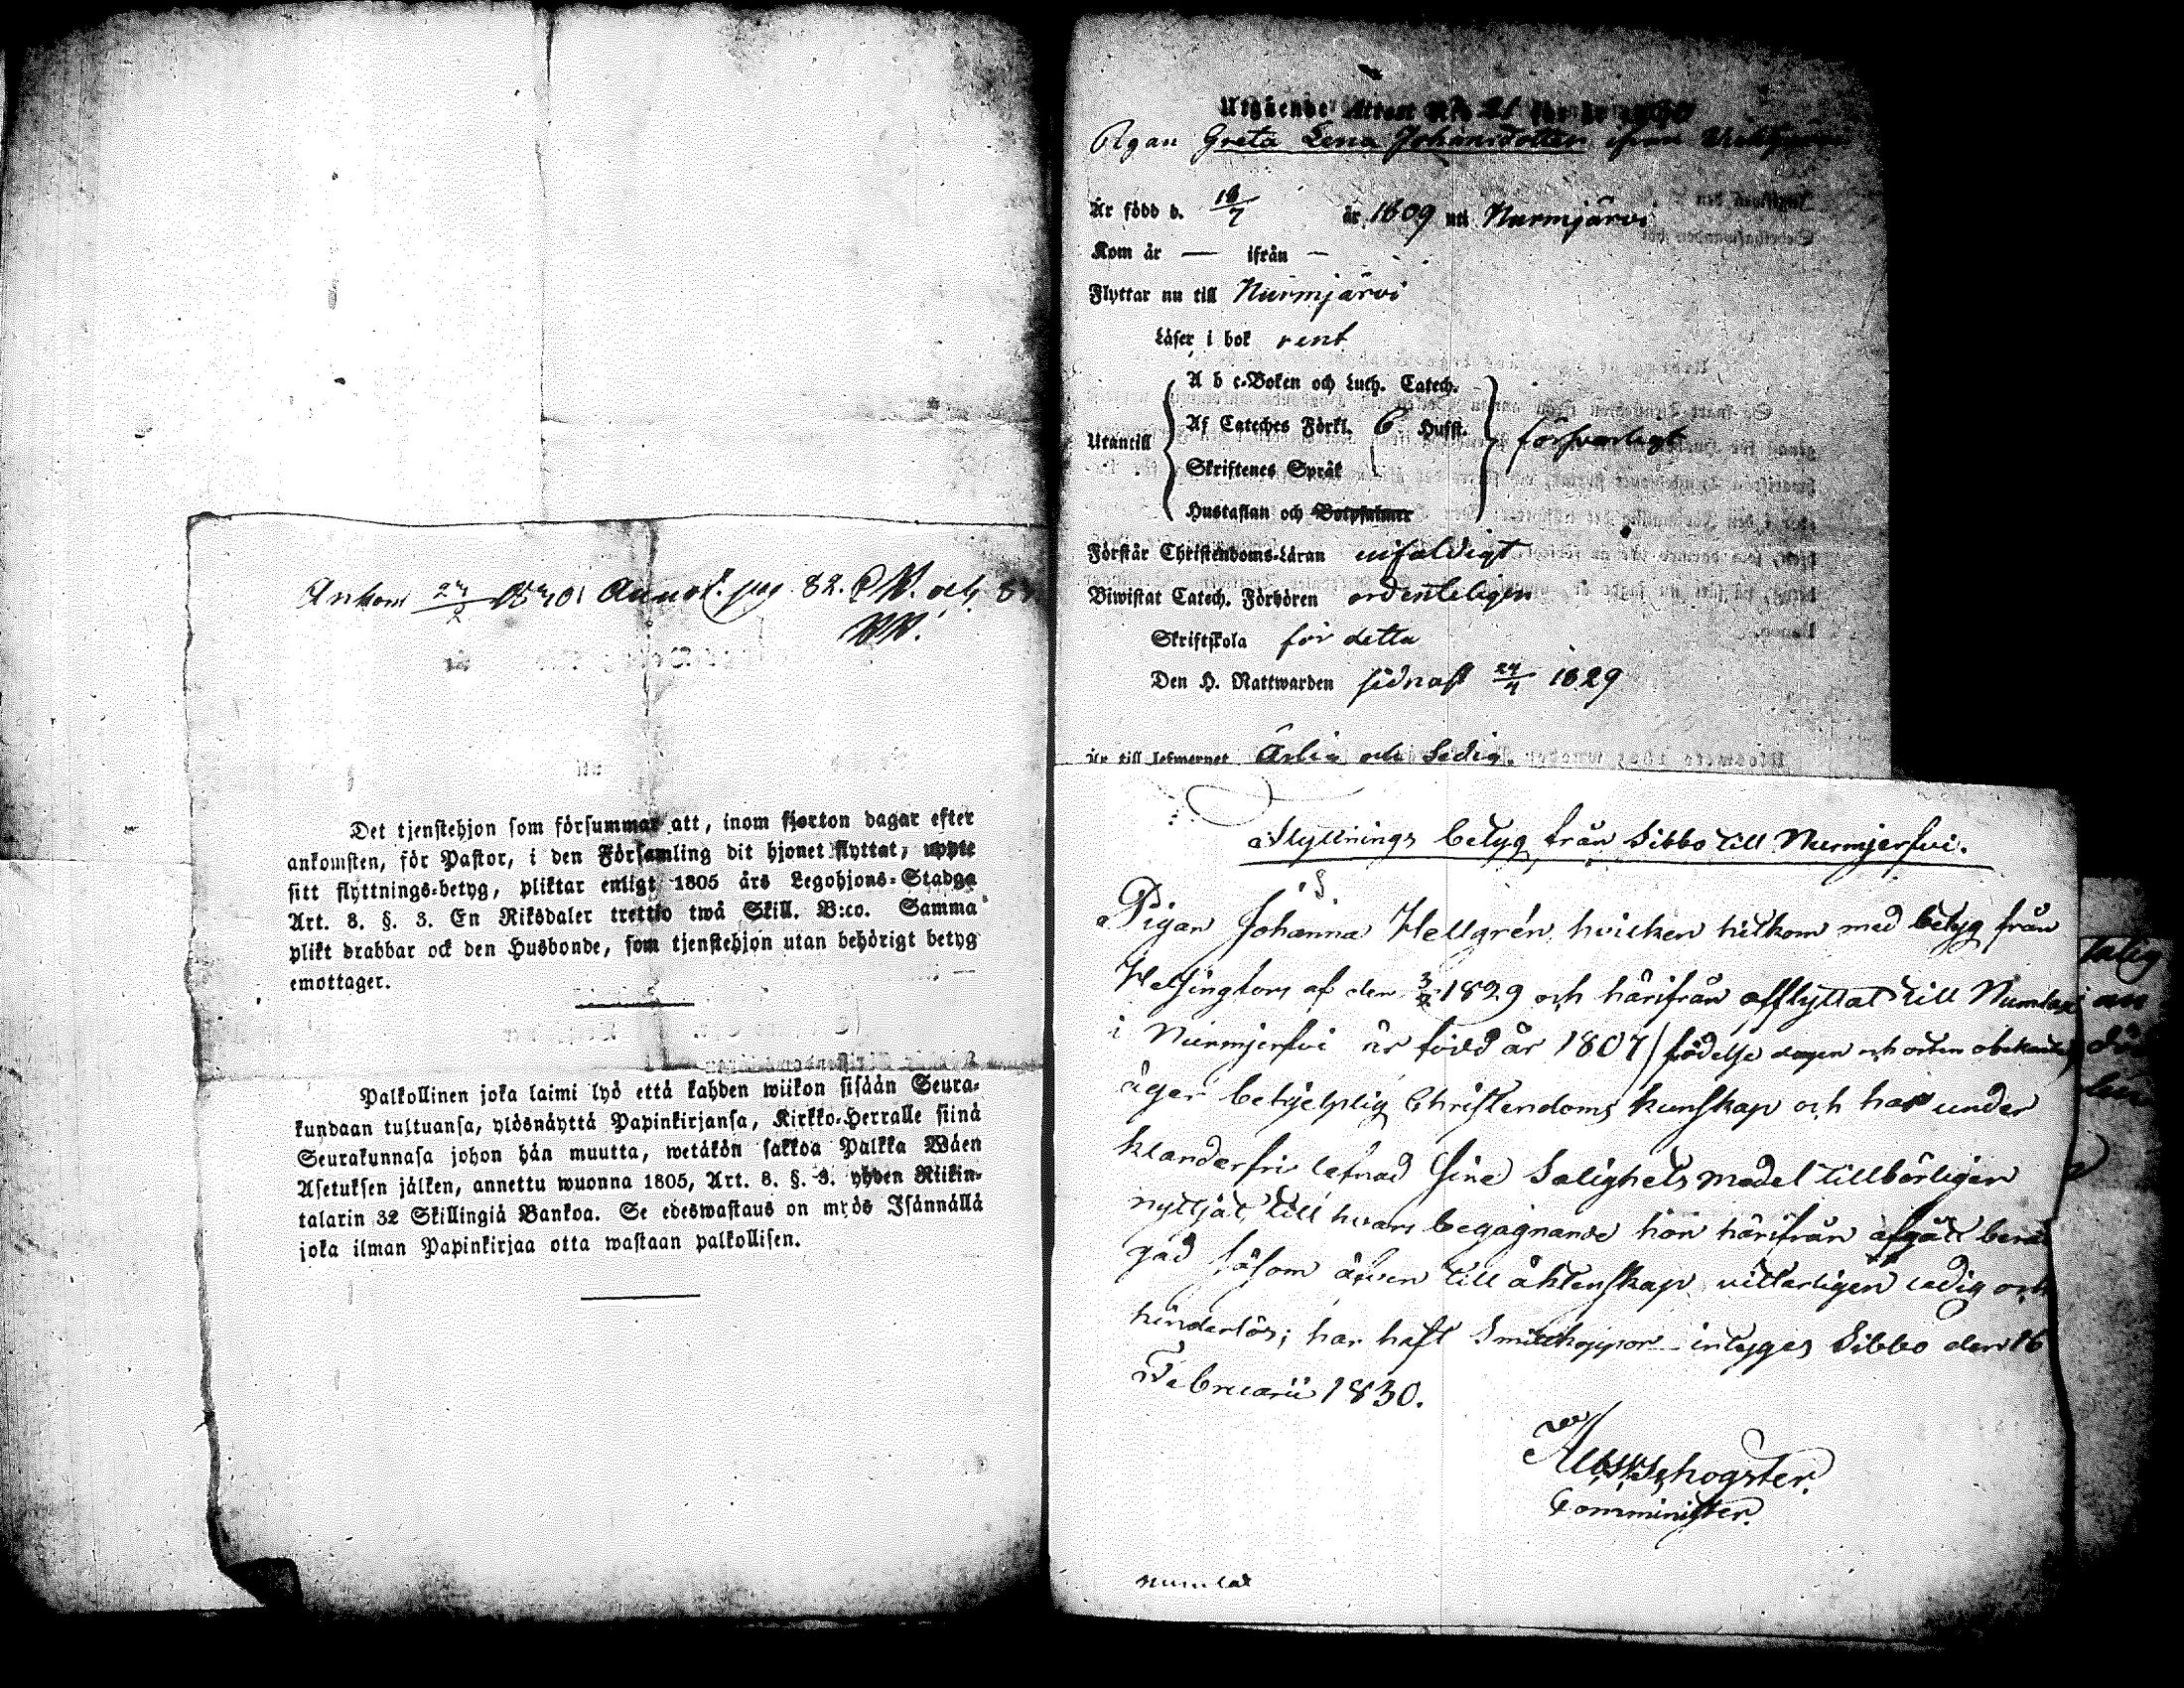 Ankom 24/2 1830. Annot. pag. 82. och
Det tjenstehjon som försummar att, inom fjorton dagar efter
ankomsten, för Pastor, i den Församling dit hjonet flyttat, uppte
sitt flyttnings-betyg, pliktar enligt 1805 års Legohjons-Stadga
Art. 8. §. 3. En Riksdaler trettio twå Skill. B:co. Samma
plikt drabbar ock den Husbonde, som tjenstehjon utan behörigt betyg
emottager.
Palkollinen joka laimi lyö että kahden wiikon sisään Seura-
kundaan tultuansa, ylösnäyttä Papinkirjansa, Kirkko-Herralle siinä
Seurakunnasa johon hän muutta, wetäkön sakkoa Palkka Wäen
Asetuksen jälken, annettu wuonna 1805, Art. 8. §. 3. yhden Riikin-
talarin 32 Skillingiä Bankoa. Se edeswastaus on myös Isännällä
joka ilman Papinkirjaa otta wastaan palkollisen.
Utgående Attest N:o 21 för år
Pigan Greta Lena Johansdotter ifrån
Är född d. 18/7 år 1809 uti Nurmjärvi
Kom år — ifrån —
Flyttar nu till Nurmjärvi
Läser i bok rent
A b c-Boken och Luth. Catech.
Utantill Af Cateches Förkl. 6 Hufst. försvarligt
Skriftenes Språk
Hustaflan och Botpsalmer
Förstår Christendoms-Läran enfaldigt
Biwistat Catech. Förhören ordenteligen
Skriftskola för detta
Den H. Nattwarden sednast 24/4 1829
Är till lefwernet Ärlig och Ledig.
Flyttnings betyg från Sibbo till Nurmjerfvi.
Pigan Johanna Hellgrén, hvilken hitkom med betyg från
Helsingfors af den 1829 och härifrån afflyttat till Numlax
i Nurmjerfvi är född år 1807 /födelse dagen och orten obekante/
äger behjelplig Christendoms kunskap och har under
klanderfri lefnad sine Salighets medel tillbörligen
nyttjat, till hvars begagnande hon härifrån afgått berät
gad såsom äfven till äktenskap vitterligen ledig och
hinderlös; har haft Smittkoppor intyges Sibbo den 16
Februarii 1830.
Comminister.
Numlax